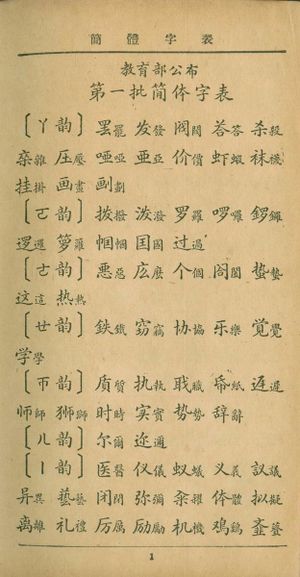 簡體字表
教育部公布
第一批简体字表
〔ㄚ韵〕罢罷 发發 阀閥 荅答 杀殺
杂雜 圧壓 哑啞 亜亞 价價 虾蝦 袜襪
挂掛 画畫 划劃
〔ㄛ韵〕拨撥 泼潑 罗羅 啰囉 锣鑼
逻邏 箩籮 帼幗 囯國 过過
〔ㄜ韵〕恶惡 庅麼 个個 阁閣 蛰蟄
这這 热熱
〔ㄝ韵〕鉄鐵 窃竊 协協 乐樂 觉覺
学學
〔ㄭ韵〕质質 执執 职職 帋紙 迟遲
师師 狮獅 时時 实實 势勢 辞辭
〔ㄦ韵〕尔爾 迩邇
〔ㄧ韵〕医醫 仪儀 蚁蟻 义義 议議
异異 艺藝 闭閉 弥彌 籴糴 体體 拟擬
离離 礼禮 厉厲 励勵 机機 鸡鷄
1